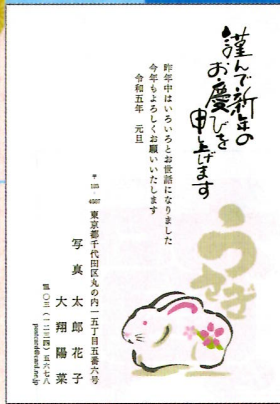 謹んで新年の
お慶びを
申上げます
昨年中はいろいろとお世話になりました
今年もよろしくお願いいたします
令和五年 元旦
うさぎ
東京都千代田区丸の内一五丁目五番六号
写真 太郎花子
大翔陽菜
☎〇三(一二三四)五六七八